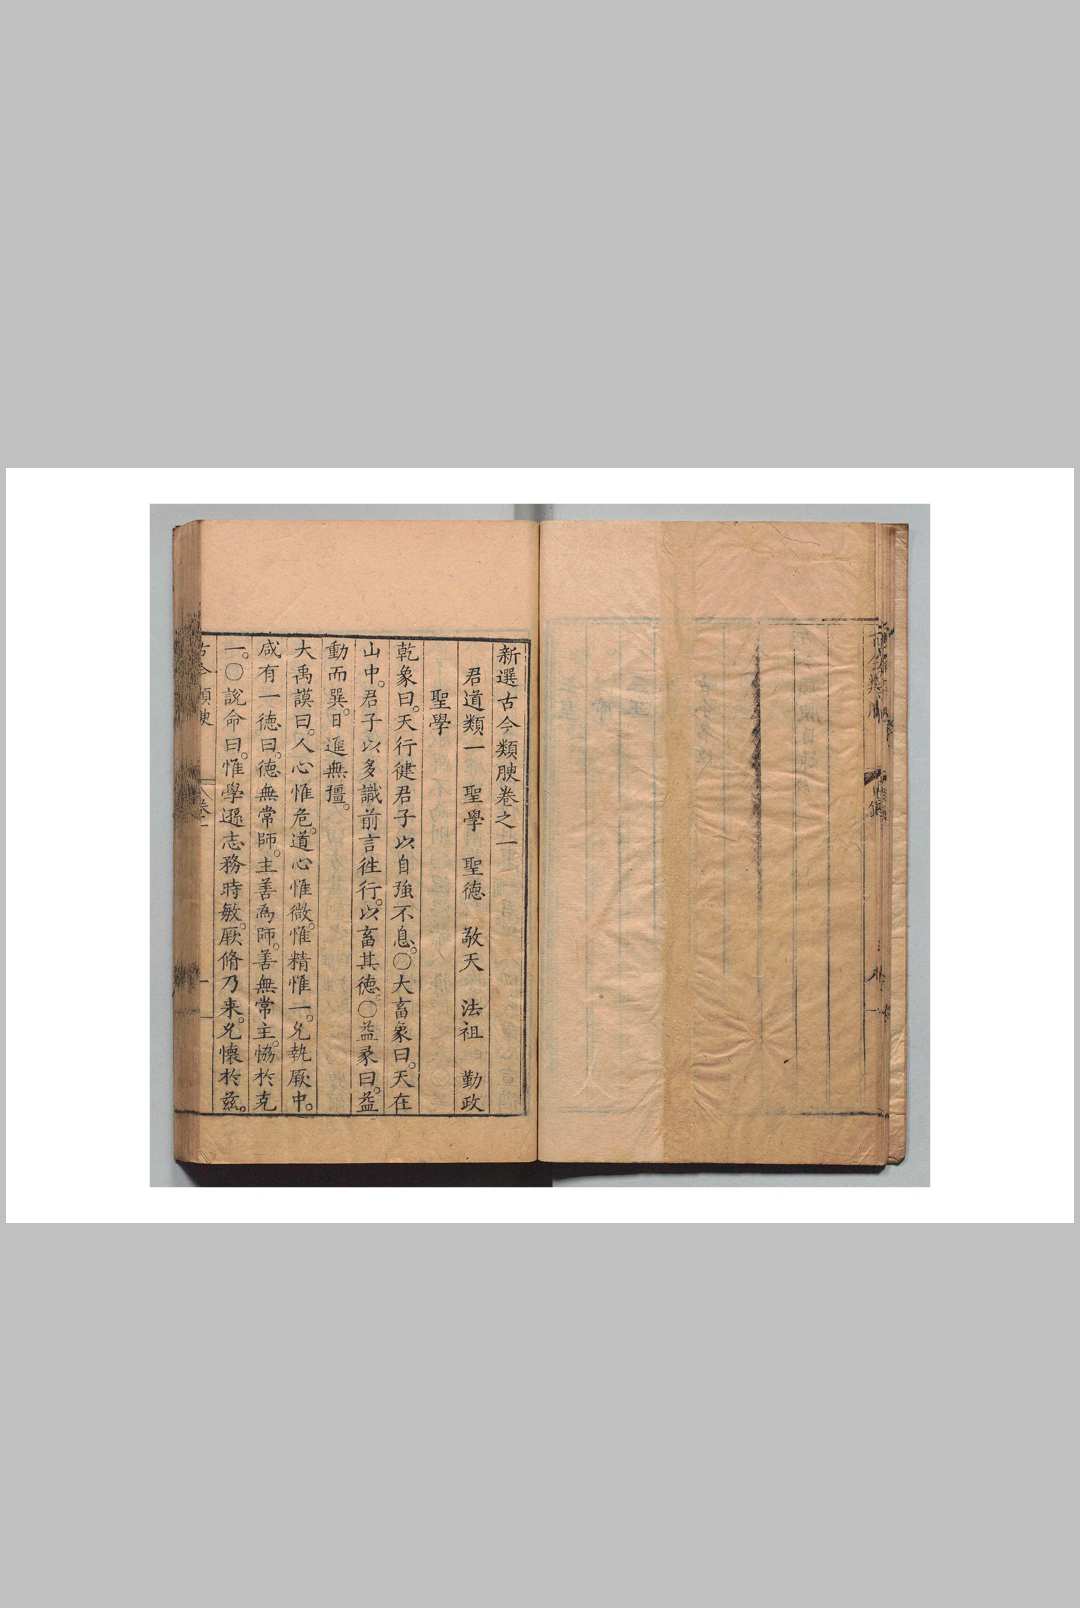 新選古今類腴卷之一
君道類一 聖學 聖德 敬天 法祖 勤政
聖學
乾象曰。天行健君子以自強不息。〇大畜象曰。天在
山中。君子以多識前言徃行。以畜其德〇益彖曰。益
動而巽。日進無疆。
大禹謨曰。人心惟危。道心惟微。惟精惟一。允執厥中。
咸有一德曰。德無常師。主善爲師。善無常主。恊於克
一。〇說命曰。惟學遜志務時敏。厥脩乃来。允懷於茲。
古今類腴
卷一
一